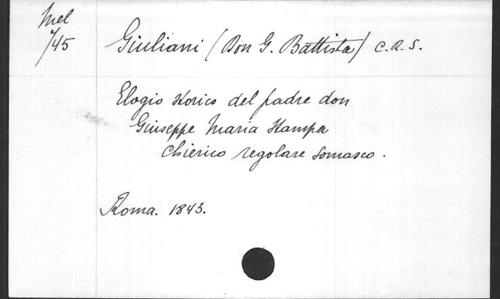 Mel
4/45
Giuliani (Don G. Battista) C.R.S.
Elogio storico del padre don
Giuseppe Maria Stampa
Chierico regolare Somasco.
Roma. 1843.